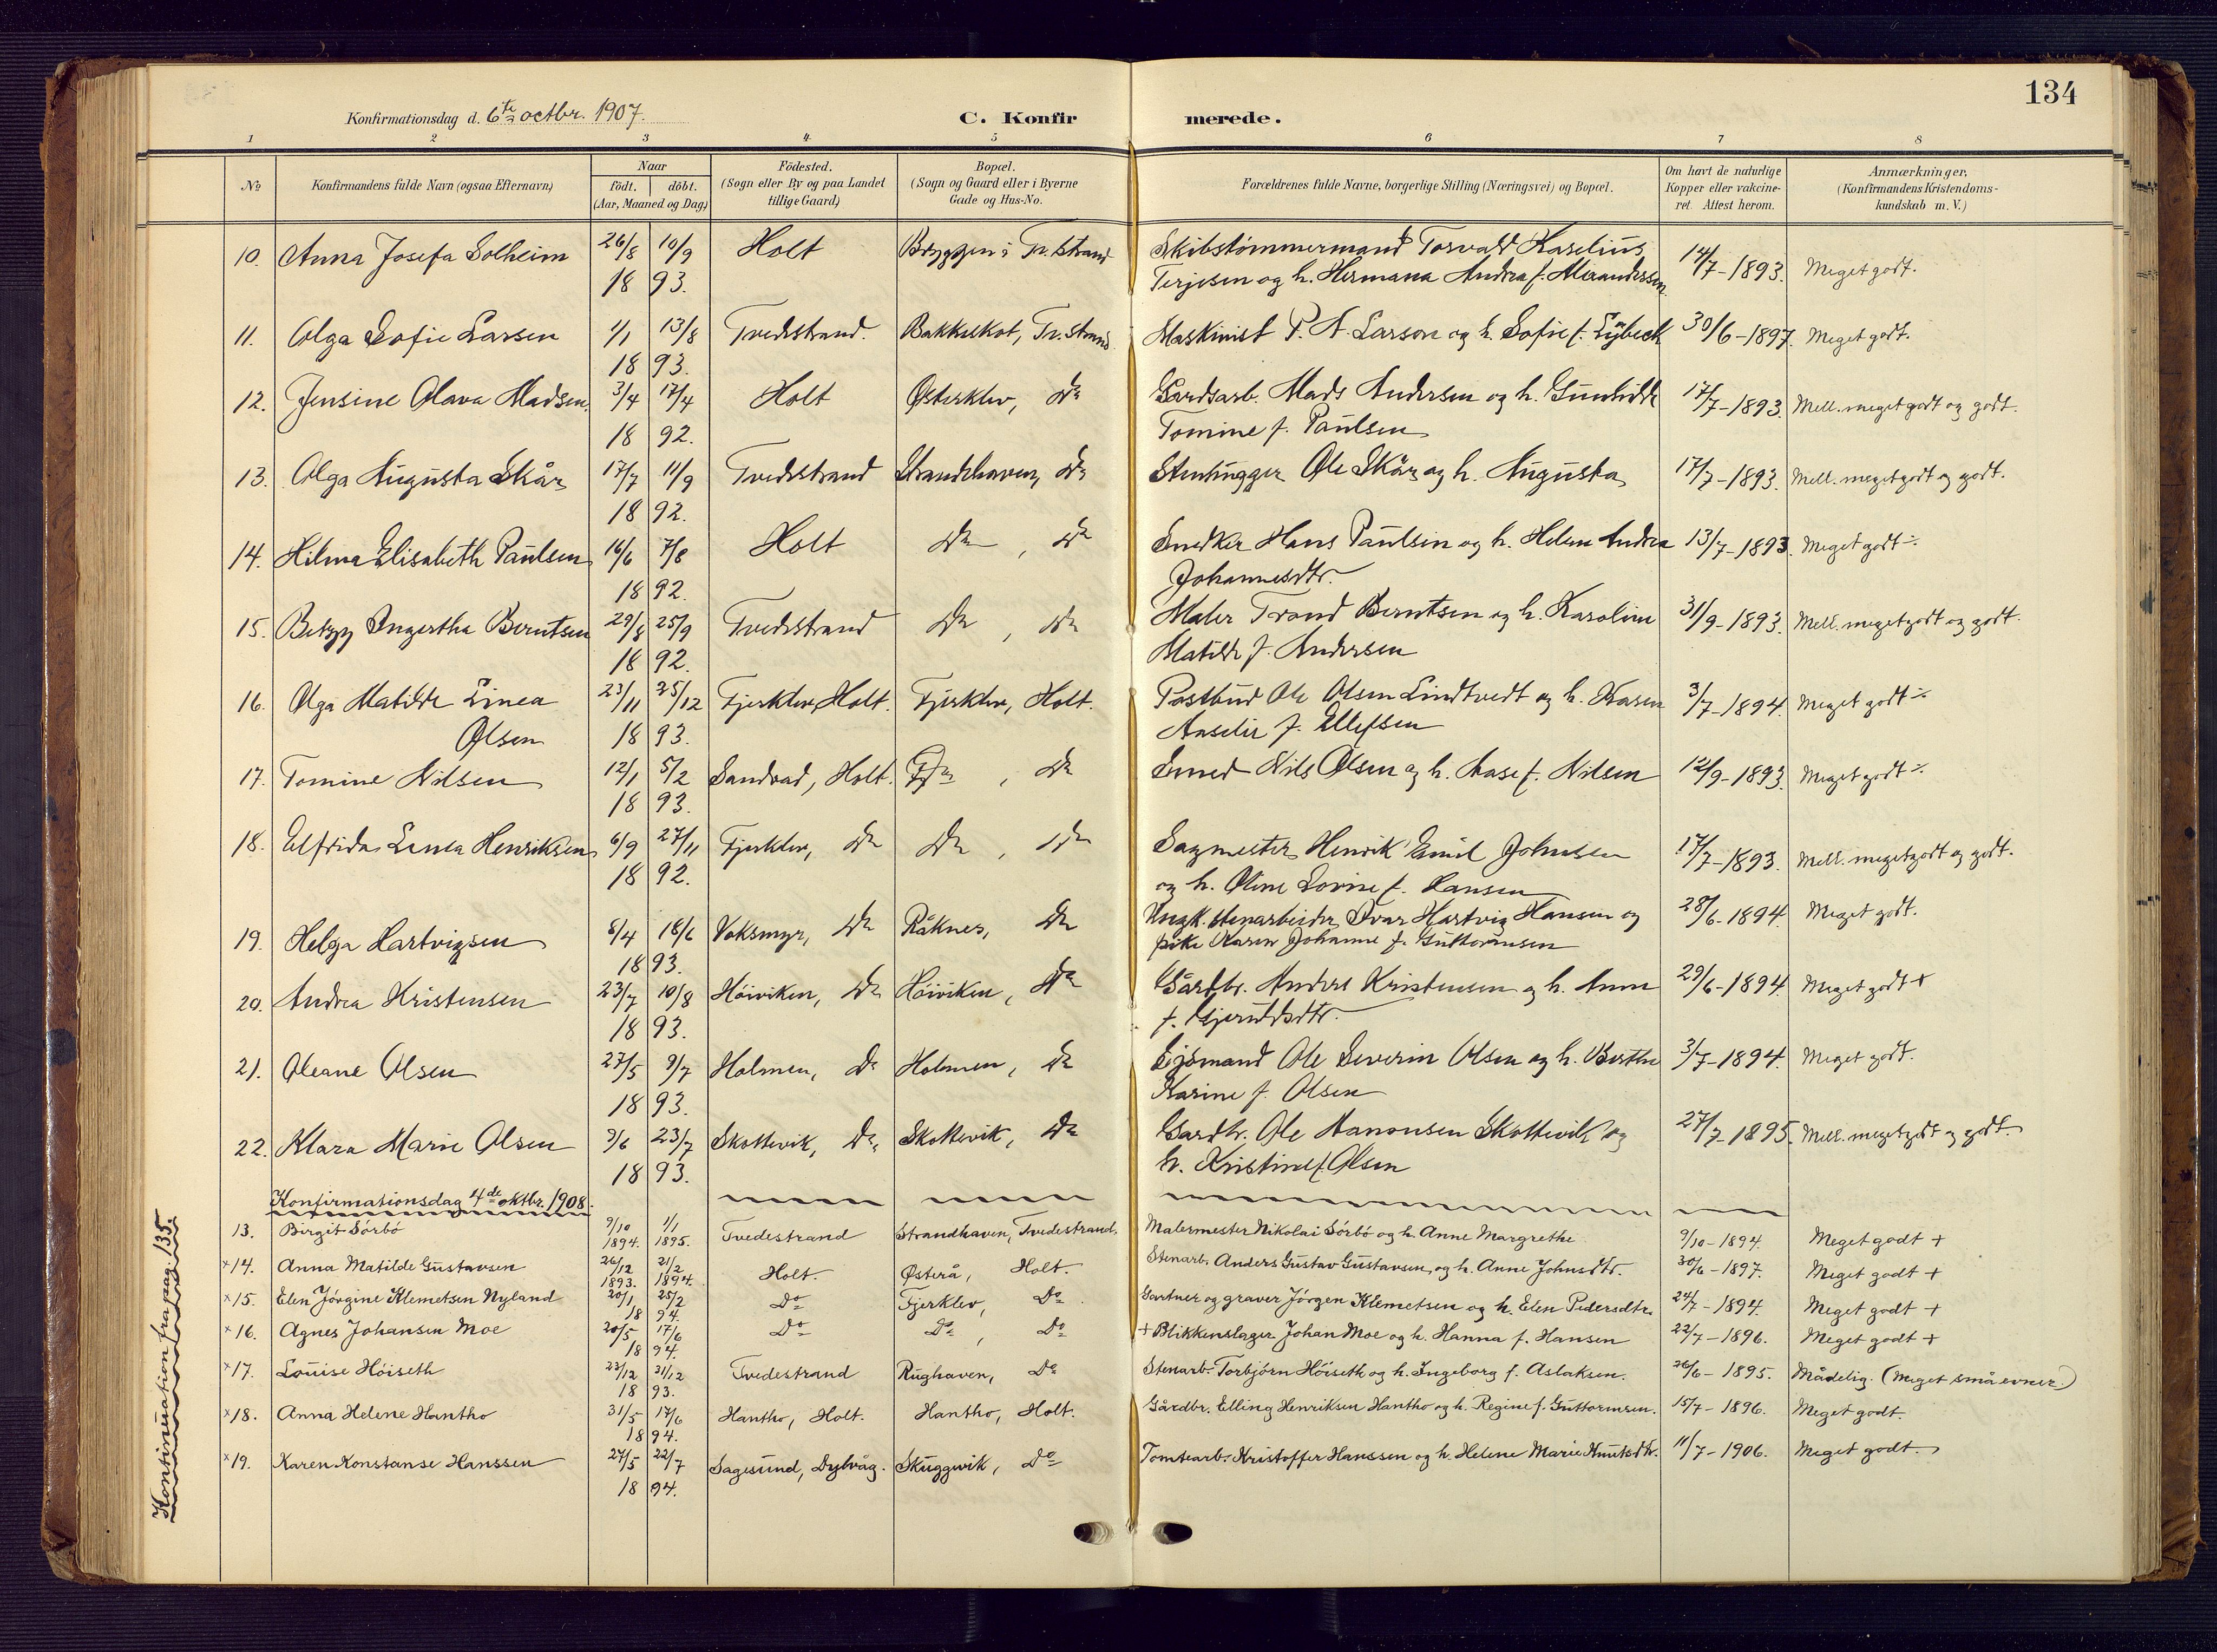 134
Konfirmationsdag d. 6te octbr. 1907.
C. Konfirmerede.
1 2 3 4 5 6 7 8
No
Konfirmandens fulde Navn (ogsaa Efternavn)
Naar
födt. döbt.
(Aar, Maaned og Dag)
Födested.
(Sogn eller By og paa Landet
tillige Gaard)
Bopæl.
(Sogn og Gaard eller i Byerne
Gade og Hus-No.
Forældrenes fulde Navne, borgerlige Stilling (Næringsvei) og Bopæl.
Om havt de naturlige
Kopper eller vakcine-
ret. Attest herom.
Anmærkninger,
(Konfirmandens Kristendoms-
kundskab m. V.)
10. Anna Josefa Solheim 26/8 10/9 Holt Bryggen i Tv.strand Skibstømmermand Torvald Karelius 14/7-1893. Meget godt.
18 93. Terjesen og h. Hermana Andrea f. Alexandersen
11. Olga Sofie Larsen 1/1 13/8 Tvedestrand. Bakkeskot, Tv.strand Maskinist P. A. Larson og h. Sofie f. Lybeck 30/6-1897. Meget godt.
18 93.
12. Jensine Olava Madsen. 3/4 17/4 Holt Østerklev, do Gardsarb. Mads Andersen og h. Gunhilde 17/7-1893. Mell. meget godt og godt.
18 92. Tomine f. Paulsen
13. Olga Augusta Skår 17/7 11/9 Tvedestrand Strandehaven, do Stenhugger Ole Skår og h. Augusta 17/7-1893. Mell. meget godt og godt.
18 92.
14. Hilma Elisabeth Paulsen 16/6 7/8 Holt do, do Snedker Hans Paulsen og h. Helene Andrea 13/7-1893. Meget godt ÷
18 92. Johannesdtr.
15. Betzy Ingertha Berntsen 29/8 25/9 Tvedestrand do, do Maler Trond Berntsen og h. Karoline 31/9-1893. Mell. meget godt og godt.
18 92. Matilde f. Andersen
16. Olga Matilde Linea 23/11 25/12 Fjerklev, Holt. Fjerklev, Holt. Postbud Ole Olsen Lindtvedt og h. Karen 3/7-1894. Meget godt ÷
Olsen 18 93. Anselie f. Ellefsen
17. Tomine Nilsen 12/1 5/2 Sandvad, Holt. do, do Smed Nils Olsen og h. Aase f. Nilsen 12/9-1893. Meget godt ÷
18 93.
18. Elfrida Linea Henriksen 6/9 27/11 Fjerklev, do do, do Sagmester Henrik Emil Johnsen 17/7-1893. Mell. meget godt og godt.
18 92. og h. Oline Lovise f. Hansen
19. Helga Hartvigsen 8/4 18/6 Voksmyr, do Råknes, do Ungk. stenarbeider Ivar Hartvig Hansen og 28/6-1894. Meget godt.
18 93. pike Karen Johanne f. Guttormsen
20. Andrea Kristensen 23/7 10/8 Höiviken, do Höiviken, do Gårdbr. Anders Kristensen og h. Anne 29/6-1894. Meget godt +
18 93. f. Gjeruldsdtr.
21. Oleane Olsen 27/5 9/7 Holmen, do Holmen, do Sjömand Ole Severin Olsen og h. Berthe 3/7-1894. Meget godt.
18 93. Karine f. Olsen
22. Klara Marie Olsen 9/6 23/7 Skottevik, do Skottevik, do Gardbr. Ole Aanonsen Skottevik og 27/7-1895. Mell. meget godt og godt.
18 93. h. Kristine f. Olsen
Konfirmationsdag 4de oktbr. 1908.
13. Birgit Sörbö 9/10 1/1 Tvedestrand Strandhaven, Tvedestrand. Malermester Nikolai Sörbö og h. Anne Margrethe 9/10-1894. Meget godt +
1894. 1895.
×14. Anna Matilde Gustavsen 26/12 21/2 Holt. Østerå, Holt. Stenarb. Anders Gustav Gustavsen og h. Anne Johnsdtr. 30/6-1897. Meget godt +
1893. 1894.
×15. Elen Jörgine Klemetsen Nyland 20/1 25/2 Do Fjerklev, Do Gartner og graver Jörgen Klemetsen og h. Elen Pedersdtr. 24/7-1894. Meget godt +
18 94.
×16. Agnes Johansen Moe 20/5 17/6 Do Do, Do + Blikkenslager Johan Moe og h. Hanna f. Hansen 22/7-1896. Meget godt +
18 94.
×17. Louise Höiseth 23/12 31/12 Tvedestrand Rughaven, Do Stenarb. Torbjörn Höiseth og h. Ingeborg f. Aslaksen. 26/6-1895. Mådelig. (Meget små evner.)
18 93.
×18. Anna Helene Hantho 31/5 17/6 Hantho, Holt. Hantho, Holt. Gårdbr. Elling Henriksen Hantho og h. Regine f. Guttormsen. 15/7-1896. Meget godt.
18 94.
×19. Karen Konstanse Hanssen 27/5 22/7 Sagesund, Dybvåg. Skuggevik, Do Tomtearb. Kristoffer Hanssen og h. Helene Marie Knutsdtr. 11/7-1906. Meget godt.
18 94.
Kontinuation fra pag. 135.